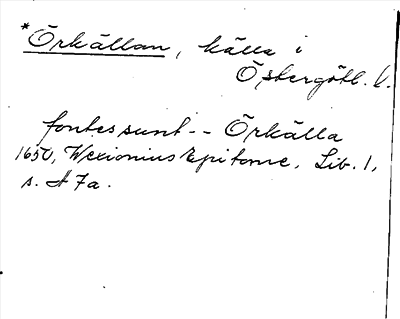 *Örkällan, källa i
Östergötl. l.
fontes sunt -- Örkälla
1650, Wexionius Epitome, Lib. 1,
s. A 7a.